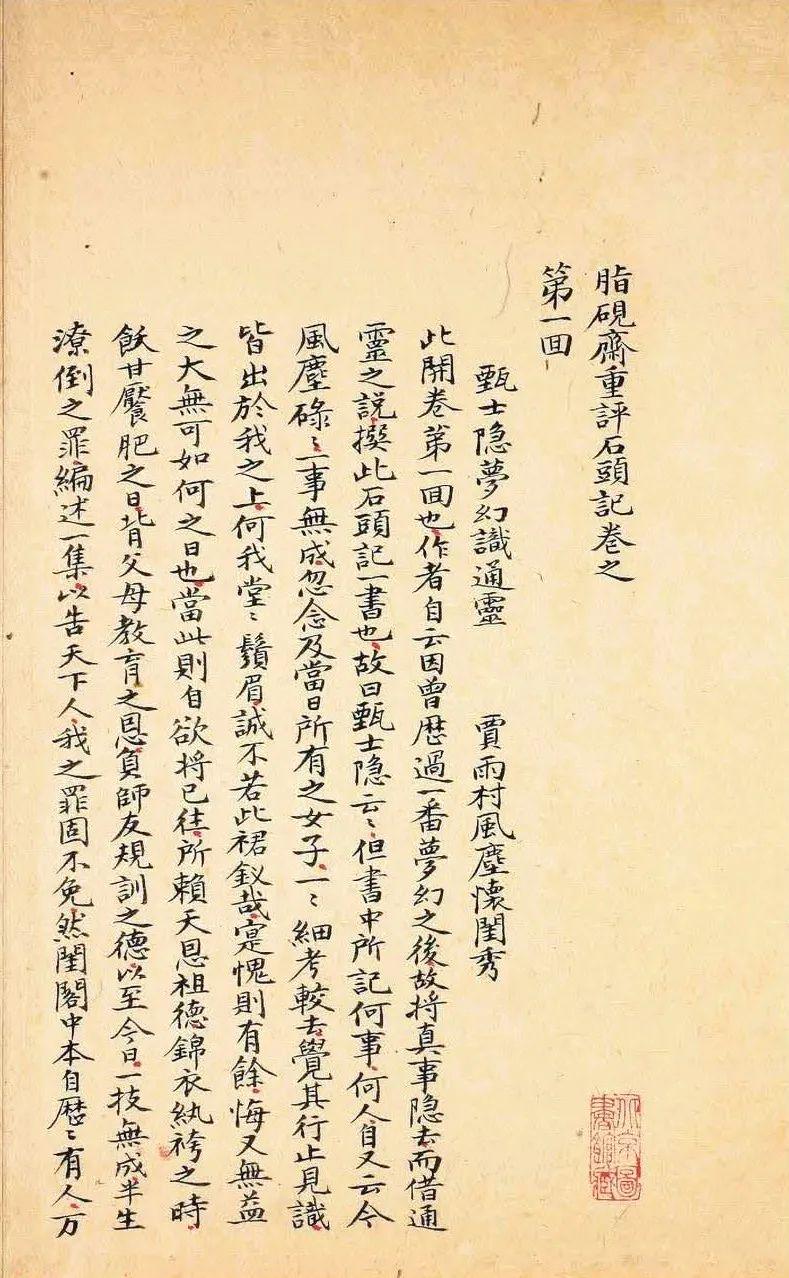 脂硯齋重評石頭記卷之
第一回
甄士隐夢幻識通靈　賈雨村風塵懷閨秀
此開卷第一回也作者自云因曾歷過一番夢幻之後故將真事隐去而借通
靈之說撰此石頭記一書也故曰甄士隐云〻但書中所記何事何人自又云今
風塵碌〻一事無成忽念及當日所有之女子一〻細考較去覺其行止見識
皆出於我之上何我堂〻鬚眉誠不若此裙釵哉寔愧則有餘悔又無益
之大無可如何之日也當此則自欲將已徃所賴天恩祖德錦衣紈袴之時
飫甘饜肥之日背父母教育之恩負師友規訓之德以至今日一技無成半生
潦倒之罪編述一集以告天下人我之罪固不免然閨閣中本自歷〻有人万
北京圖
書館藏